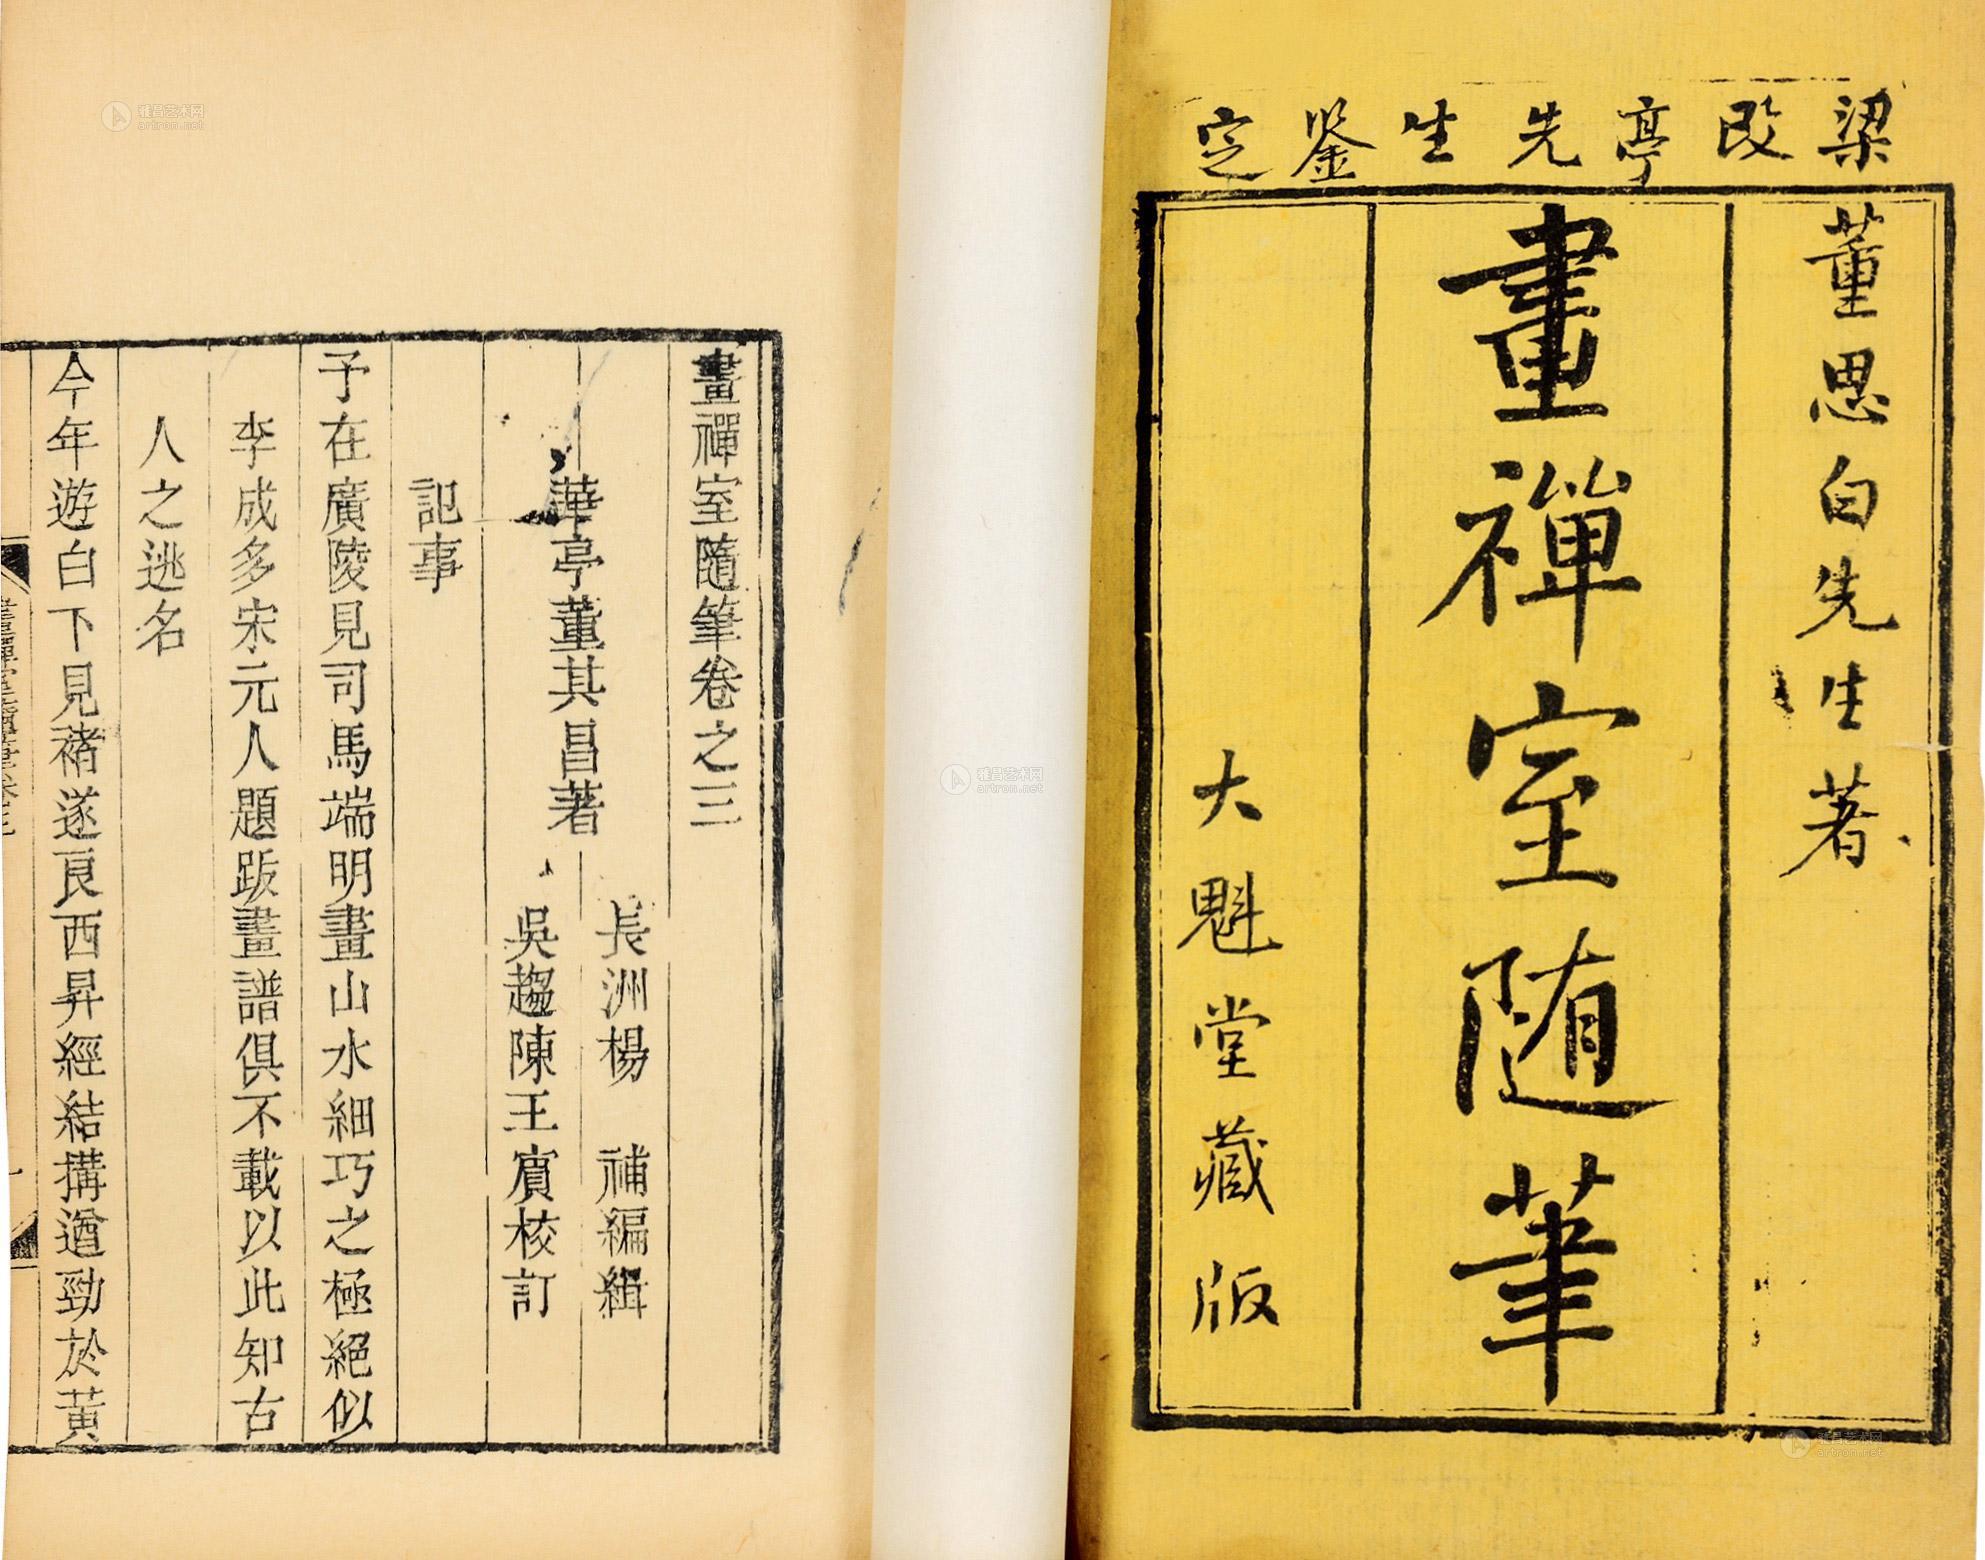 梁改亭先生鉴定
董思白先生著
畫禪室随筆
大魁堂藏版
畫禪室隨筆卷之三
長洲楊　補編緝
華亭董其昌著
吳趨陳王賔校訂
記事
予在廣陵見司馬端明畫山水細巧之極絕似
李成多宋元人題跋畫譜俱不載以此知古
人之逃名
今年遊白下見褚遂良西昇經結搆遒勁於黃
雅昌艺术网
artron.net
雅昌艺术网
artron.net
雅昌艺术网
artron.net